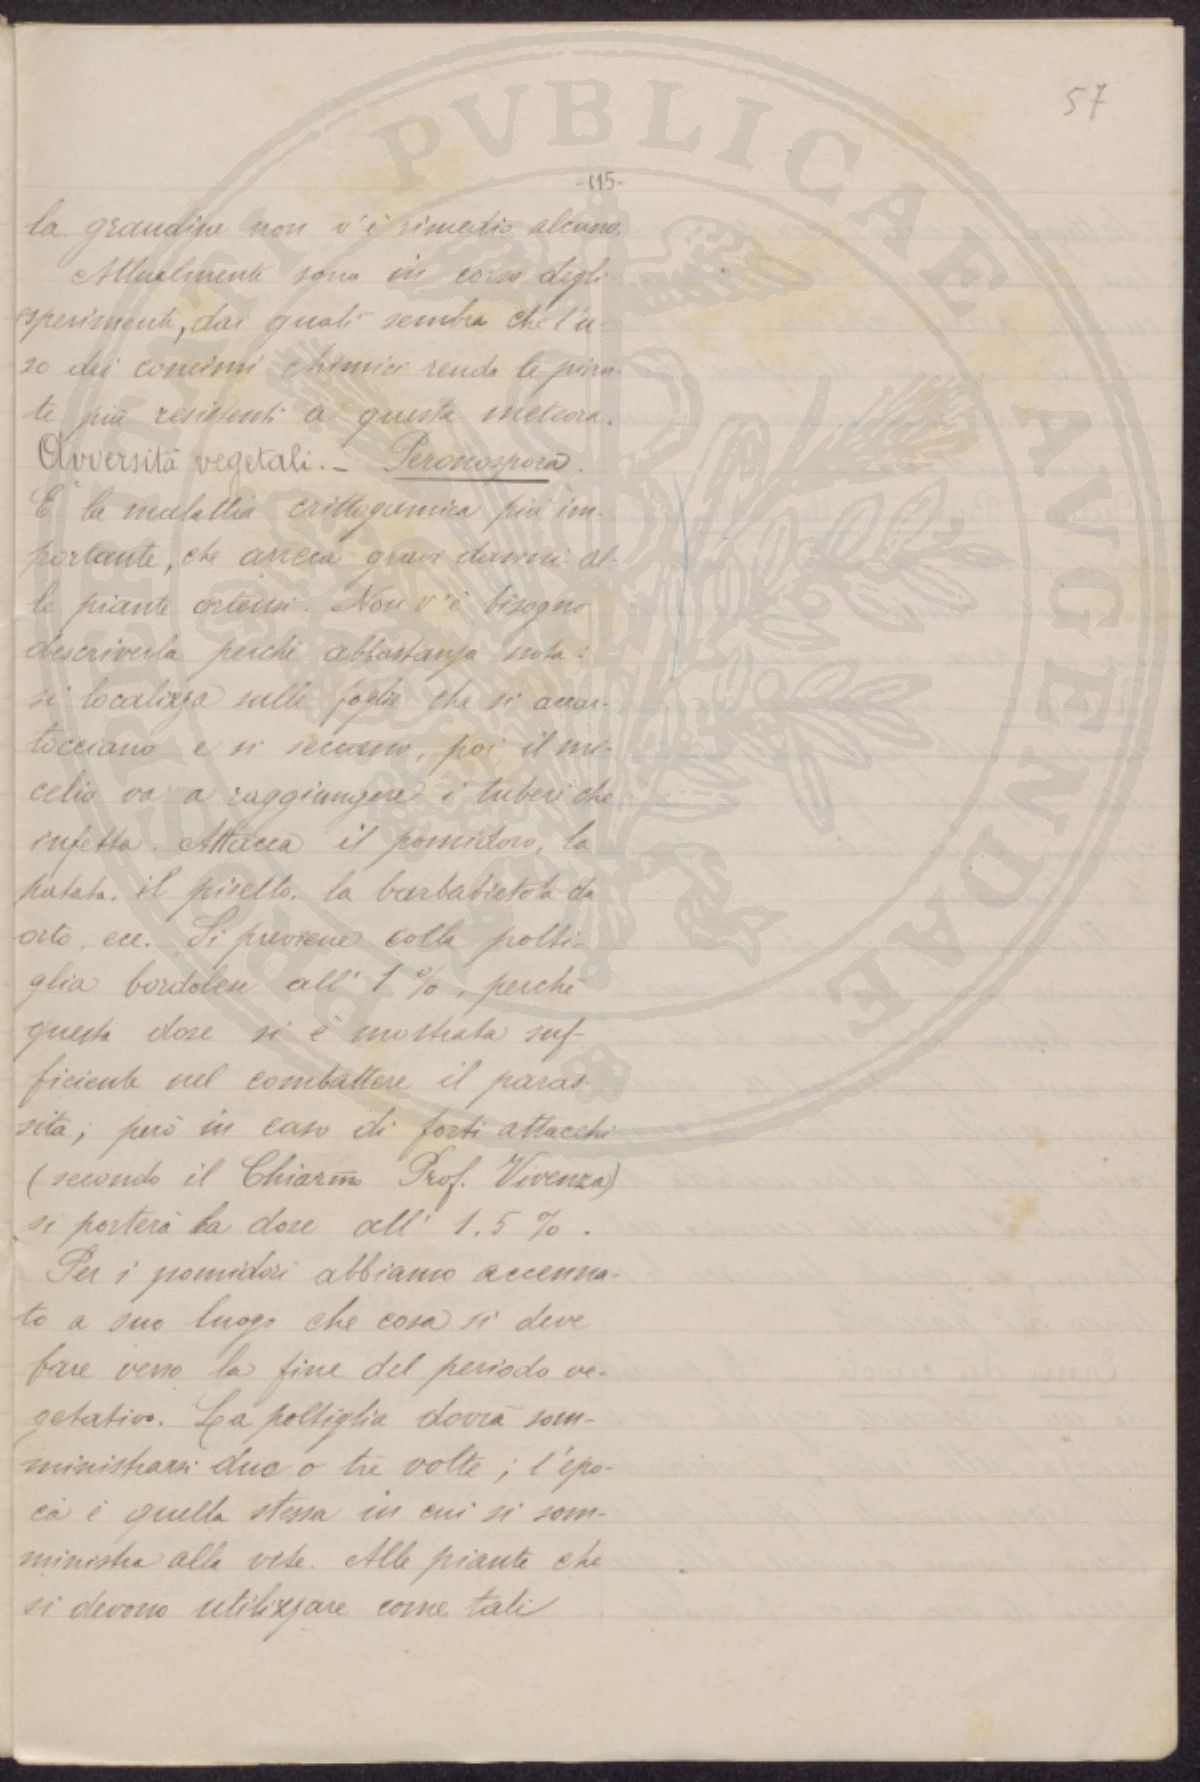 57
-115-
la grandine non v'è rimedio alcuno.
Attualmente sono in corso degli
esperimenti, dai quali sembra che l'u-
so dei concimi chimici renda le pian-
te più resistenti a questa meteora.
Avversità vegetali. - Peronospora.
È la malattia crittogamica più im-
portante, che arreca gravi danni al-
le piante ortensi. Non v'è bisogno
descriverla perchè abbastanza nota:
si localizza sulle foglie che si accar-
tocciano e si seccano, poi il mi-
celio va a raggiungere i tuberi che
infetta. Attacca il pomidoro, la
patata, il pisello, la barbabietola da
orto, ecc. Si previene colla polti-
glia bordolese all' 1 %, perchè
questa dose si è mostrata suf-
ficiente nel combattere il paras-
sita; però in caso di forti attacchi
(secondo il Chiarmo Prof. Vivenza)
si porterà la dose all' 1.5 %.
Per i pomidori abbiamo accenna-
to a suo luogo che cosa si deve
fare verso la fine del periodo ve-
getativo. La poltiglia dovrà som-
ministrarsi due o tre volte; l'epo-
ca è quella stessa in cui si som-
ministra alla vite. Alle piante che
si devono utilizzare come tali
PVBLICAE AVGENDAE